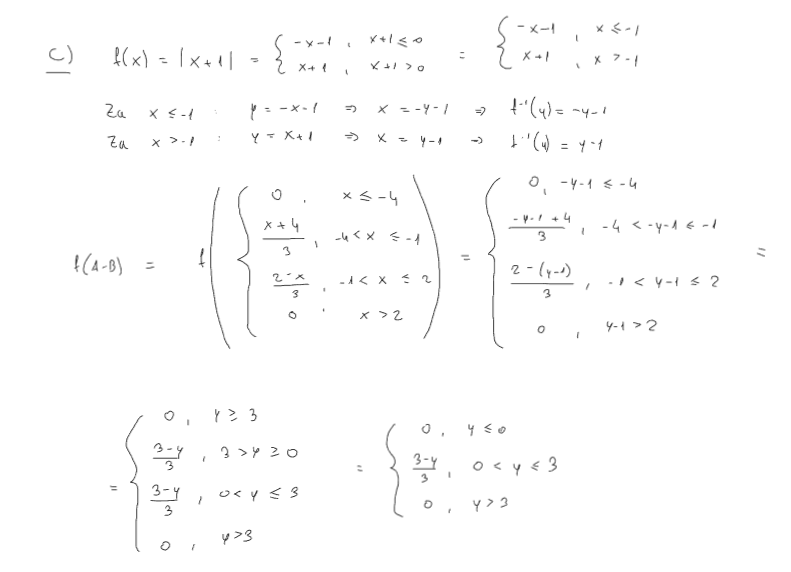 c) f(x) = |x+1| = { -x-1 , x+1 ≤ 0 ; x+1 , x+1 > 0 = { -x-1 , x ≤ -1 ; x+1 , x > -1
Za x ≤ -1 : y = -x-1 ⇒ x = -y-1 ⇒ f⁻¹(y) = -y-1
Za x > -1 : y = x+1 ⇒ x = y-1 ⇒ f⁻¹(y) = y-1
f(A-B) = f ( { 0 , x ≤ -4 ; (x+4)/3 , -4 < x ≤ -1 ; (2-x)/3 , -1 < x ≤ 2 ; 0 , x > 2 ) = { 0 , -y-1 ≤ -4 ; (-y-1+4)/3 , -4 < -y-1 ≤ -1 ; (2-(y-1))/3 , -1 < y-1 ≤ 2 ; 0 , y-1 > 2 =
= { 0 , y ≥ 3 ; (3-y)/3 , 3 > y ≥ 0 ; (3-y)/3 , 0 < y ≤ 3 ; 0 , y > 3 = { 0 , y ≤ 0 ; (3-y)/3 , 0 < y ≤ 3 ; 0 , y > 3